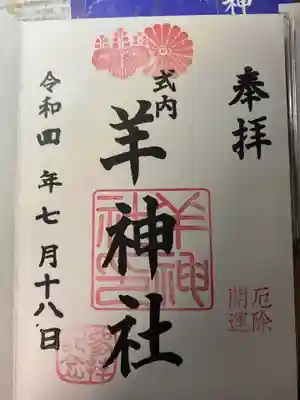 神
奉拝
厄除
開運
式内
羊神社
羊神
社之
令和四年七月十八日